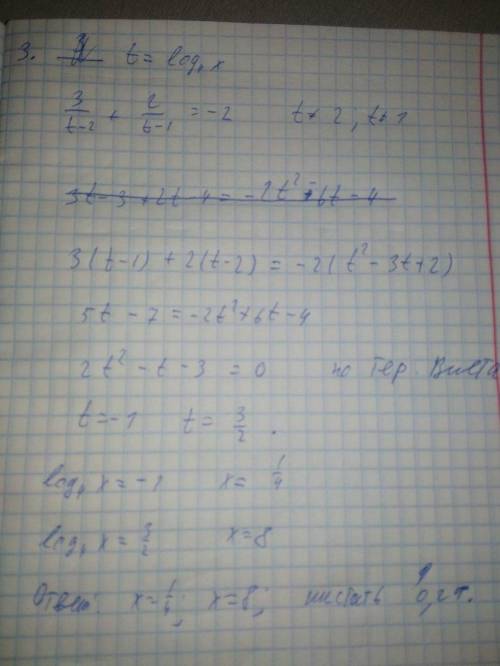 3. t = log₄ x
3/(t-2) + 2/(t-1) = -2 t ≠ 2 ; t ≠ 1
3t - 3 + 2t - 4 = -2t² + 6t - 4
3(t-1) + 2(t-2) = -2(t² - 3t + 2)
5t - 7 = -2t² + 6t - 4
2t² - t - 3 = 0 по тер. Виета
t = -1 t = 3/2.
log₄ x = -1 x = 1/4
log₄ x = 3/2 x = 8
Ответ: x = 1/4; x = 8;